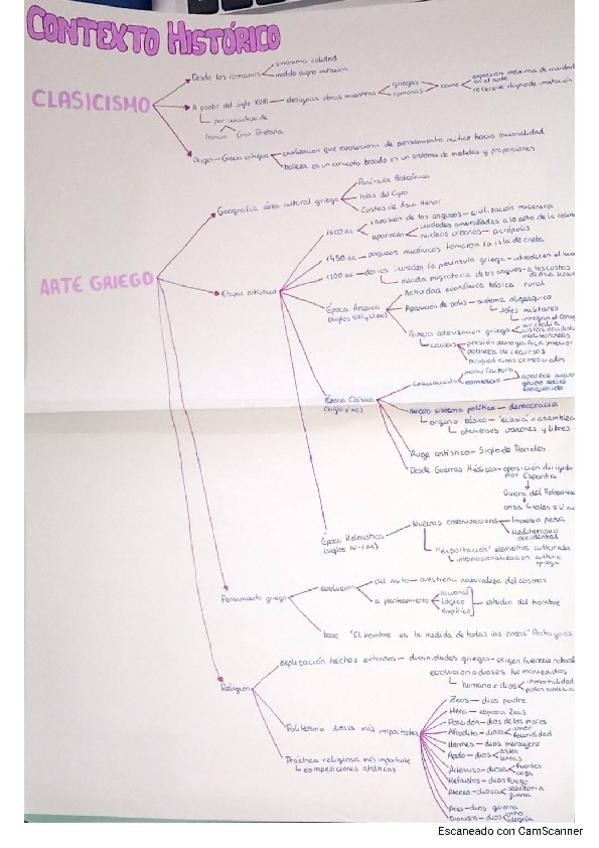 CONTEXTO HISTÓRICO
CLASICISMO
Desde los romanos
sinónimo calidad
modelo digno imitación
A partir del siglo XVIII — designan obras maestras
griegas
romanas
como
expresión máxima de calidad
en el arte
referente digno de imitación
por iniciativa de
Francia
Gran Bretaña
Origen - Grecia antigua
civilización que evoluciona de pensamiento mítico hacia racionalidad
belleza es un concepto basado en un sistema de medidas y proporciones
ARTE GRIEGO
Geografía área cultural griega
Península Balcánica
Islas del Egeo
Costas de Asia Menor
Etapas artísticas
1600 ac
invasión de los aqueos — civilización micénica
aparición
ciudades amuralladas a lo alto de la
núcleos urbanos — acrópolis
1450 ac — aqueos micénicos tomaron la isla de creta
1200 ac — dorios invaden la península griega — introducen el
huida migratoria de los aqueos - a las costas
de Asia
Época Arcaica
Actividad económica básica rural
Aparición de polis — sistema oligárquico
jefes militares
integran el
Primera colonización griega
mediterráneas
causas
presión demográfica
pobreza de recursos
Época Clásica
Crecimiento
manufactura
comercio
aparece nuevo
grupo social
enriquecido
nuevo sistema político — democracia
órgano básico — "eclesia" o asamblea
atenienses varones y libres
Auge artístico — Siglo de Pericles
Desde Guerras Médicas — oposición dirigida
por Esparta
Guerra del Peloponeso
Época Helenística
(siglos IV-I ac)
Nuevas colonizaciones
Imperio persa
Mediterráneo
occidental
"exportación" elementos culturales
internacionalización cultura
griega
Pensamiento griego
evolución
del mito — cuestiona naturaleza del cosmos
a planteamiento
racional
lógico
empírico
estudio del hombre
base "El hombre es la medida de todas las cosas" Protágoras
Religión
explicación hechos extraños — divinidades griegas — origen fuerzas
evoluciona dioses humanizados
humano ≠ dios
inmortalidad
Politeísmo dioses más importantes
Zeus — dios padre
Hera — esposa Zeus
Poseidón — dios de los mares
Afrodita — diosa
amor
fecundidad
Hermes — dios mensajero
Apolo — dios
artes
letras
Artemisa — diosa
fuentes
caza
Hefaistos — dios fuego
Atenea — diosa
sabiduría
guerra
Ares — dios guerra
Dionisos — dios
vino
alegría
Práctica religiosa más importante
competiciones atléticas
Escaneado con CamScanner